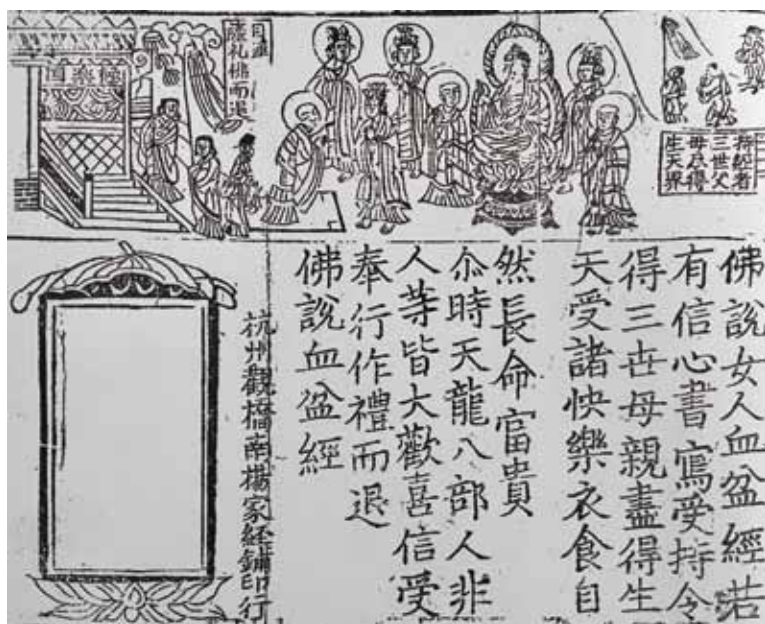 持經者
三世父
母尽得
生天界
目連
礼佛而退
佛說女人血盆經若
有信心書寫受持令
得三世母親盡得生
天受諸快樂衣食自
然長命富貴
尒時天龍八部人非
人等皆大歡喜信受
奉行作禮而退
佛說血盆經
杭州觀橋南楊家經鋪印行